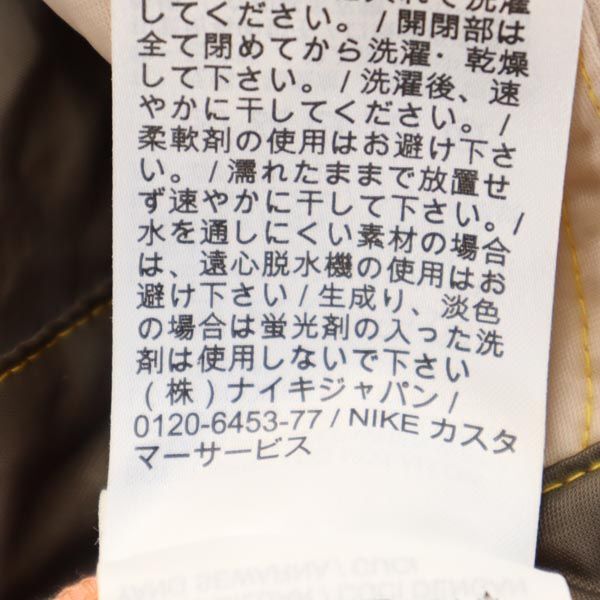 してください。/ 開閉部は
全て閉めてから洗濯・乾燥
して下さい。/ 洗濯後、速
やかに干してください。/
柔軟剤の使用はお避け下さ
い。 / 濡れたままで放置せ
ず速やかに干して下さい。/
水を通しにくい素材の場合
は、遠心脱水機の使用はお
避け下さい / 生成り、淡色
の場合は蛍光剤の入った洗
剤は使用しないで下さい
(株) ナイキジャパン /
0120-6453-77 / NIKE カスタ
マーサービス